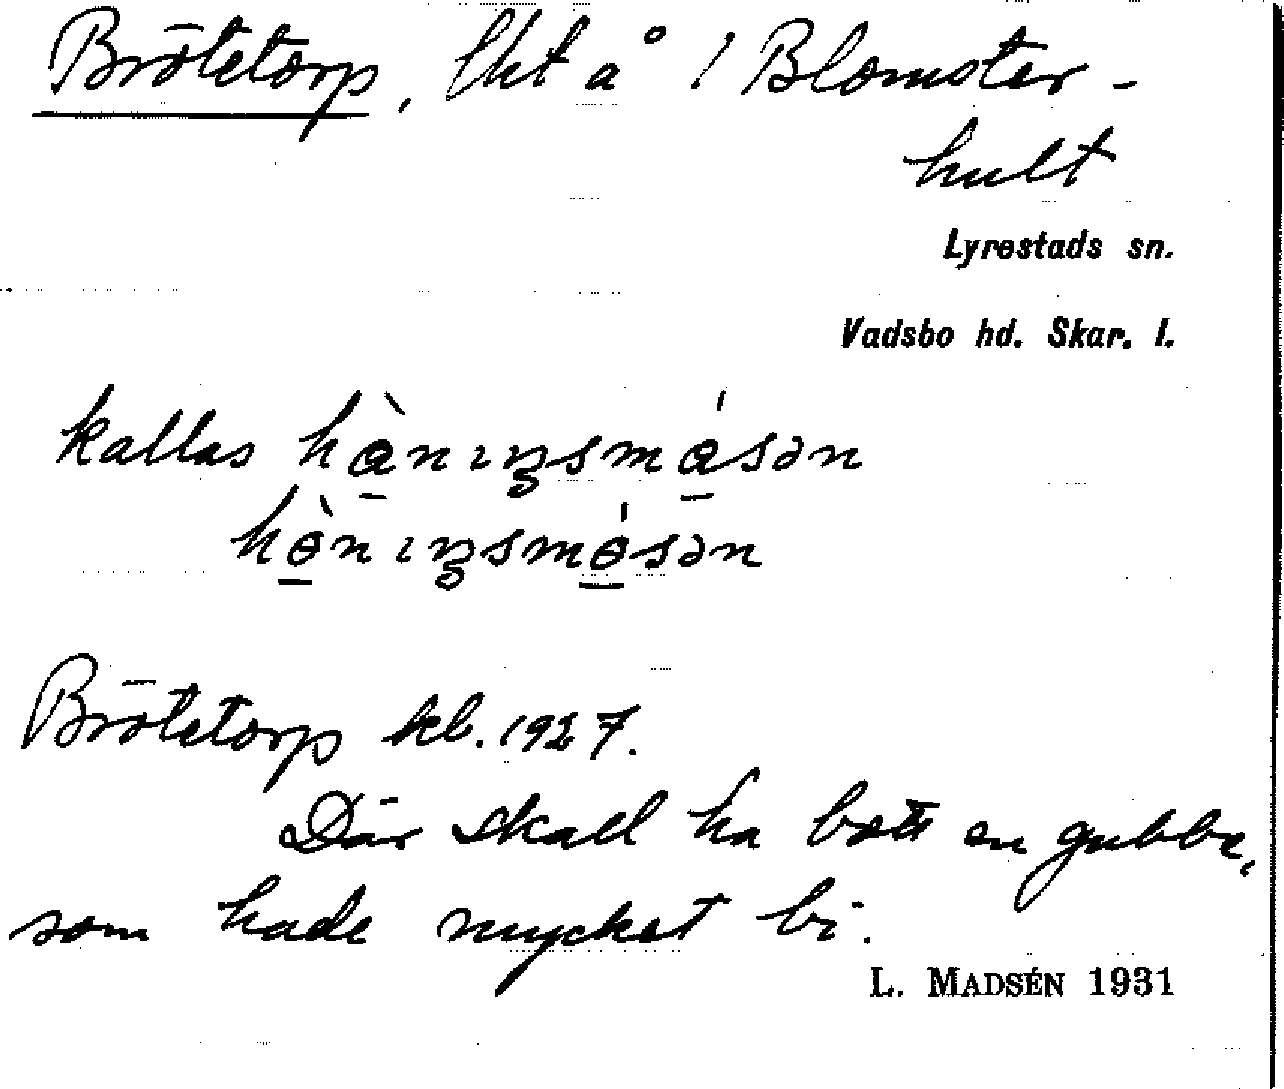 Brötetorp, lht å 1 Blomster-
hult
Lyrestads sn.
Vadsbo hd. Skar. l.
kallas
Brötetorp kb. 1927.
Där skall ha bott en gubbe,
som hade mycket bi.
L. MADSÉN 1931